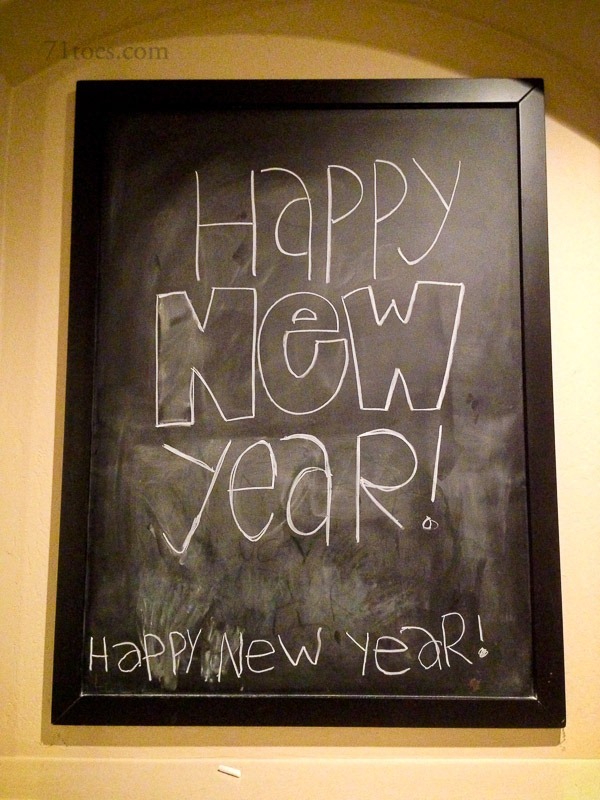 71toes.com
Happy
New
yeaR!
Happy New yeaR!